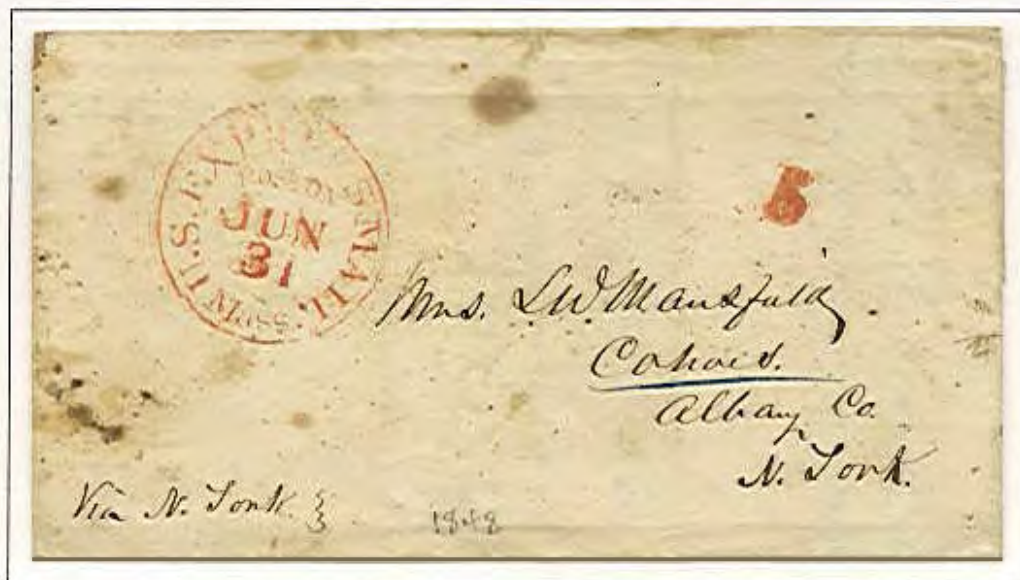 U.S. EXPRESS MAIL.
BOSTON
JUN
31
MASS
5
Mrs. L.W. Mansfield.
Cohoes.
Albany Co.
N. York.
Via N. York.
1848